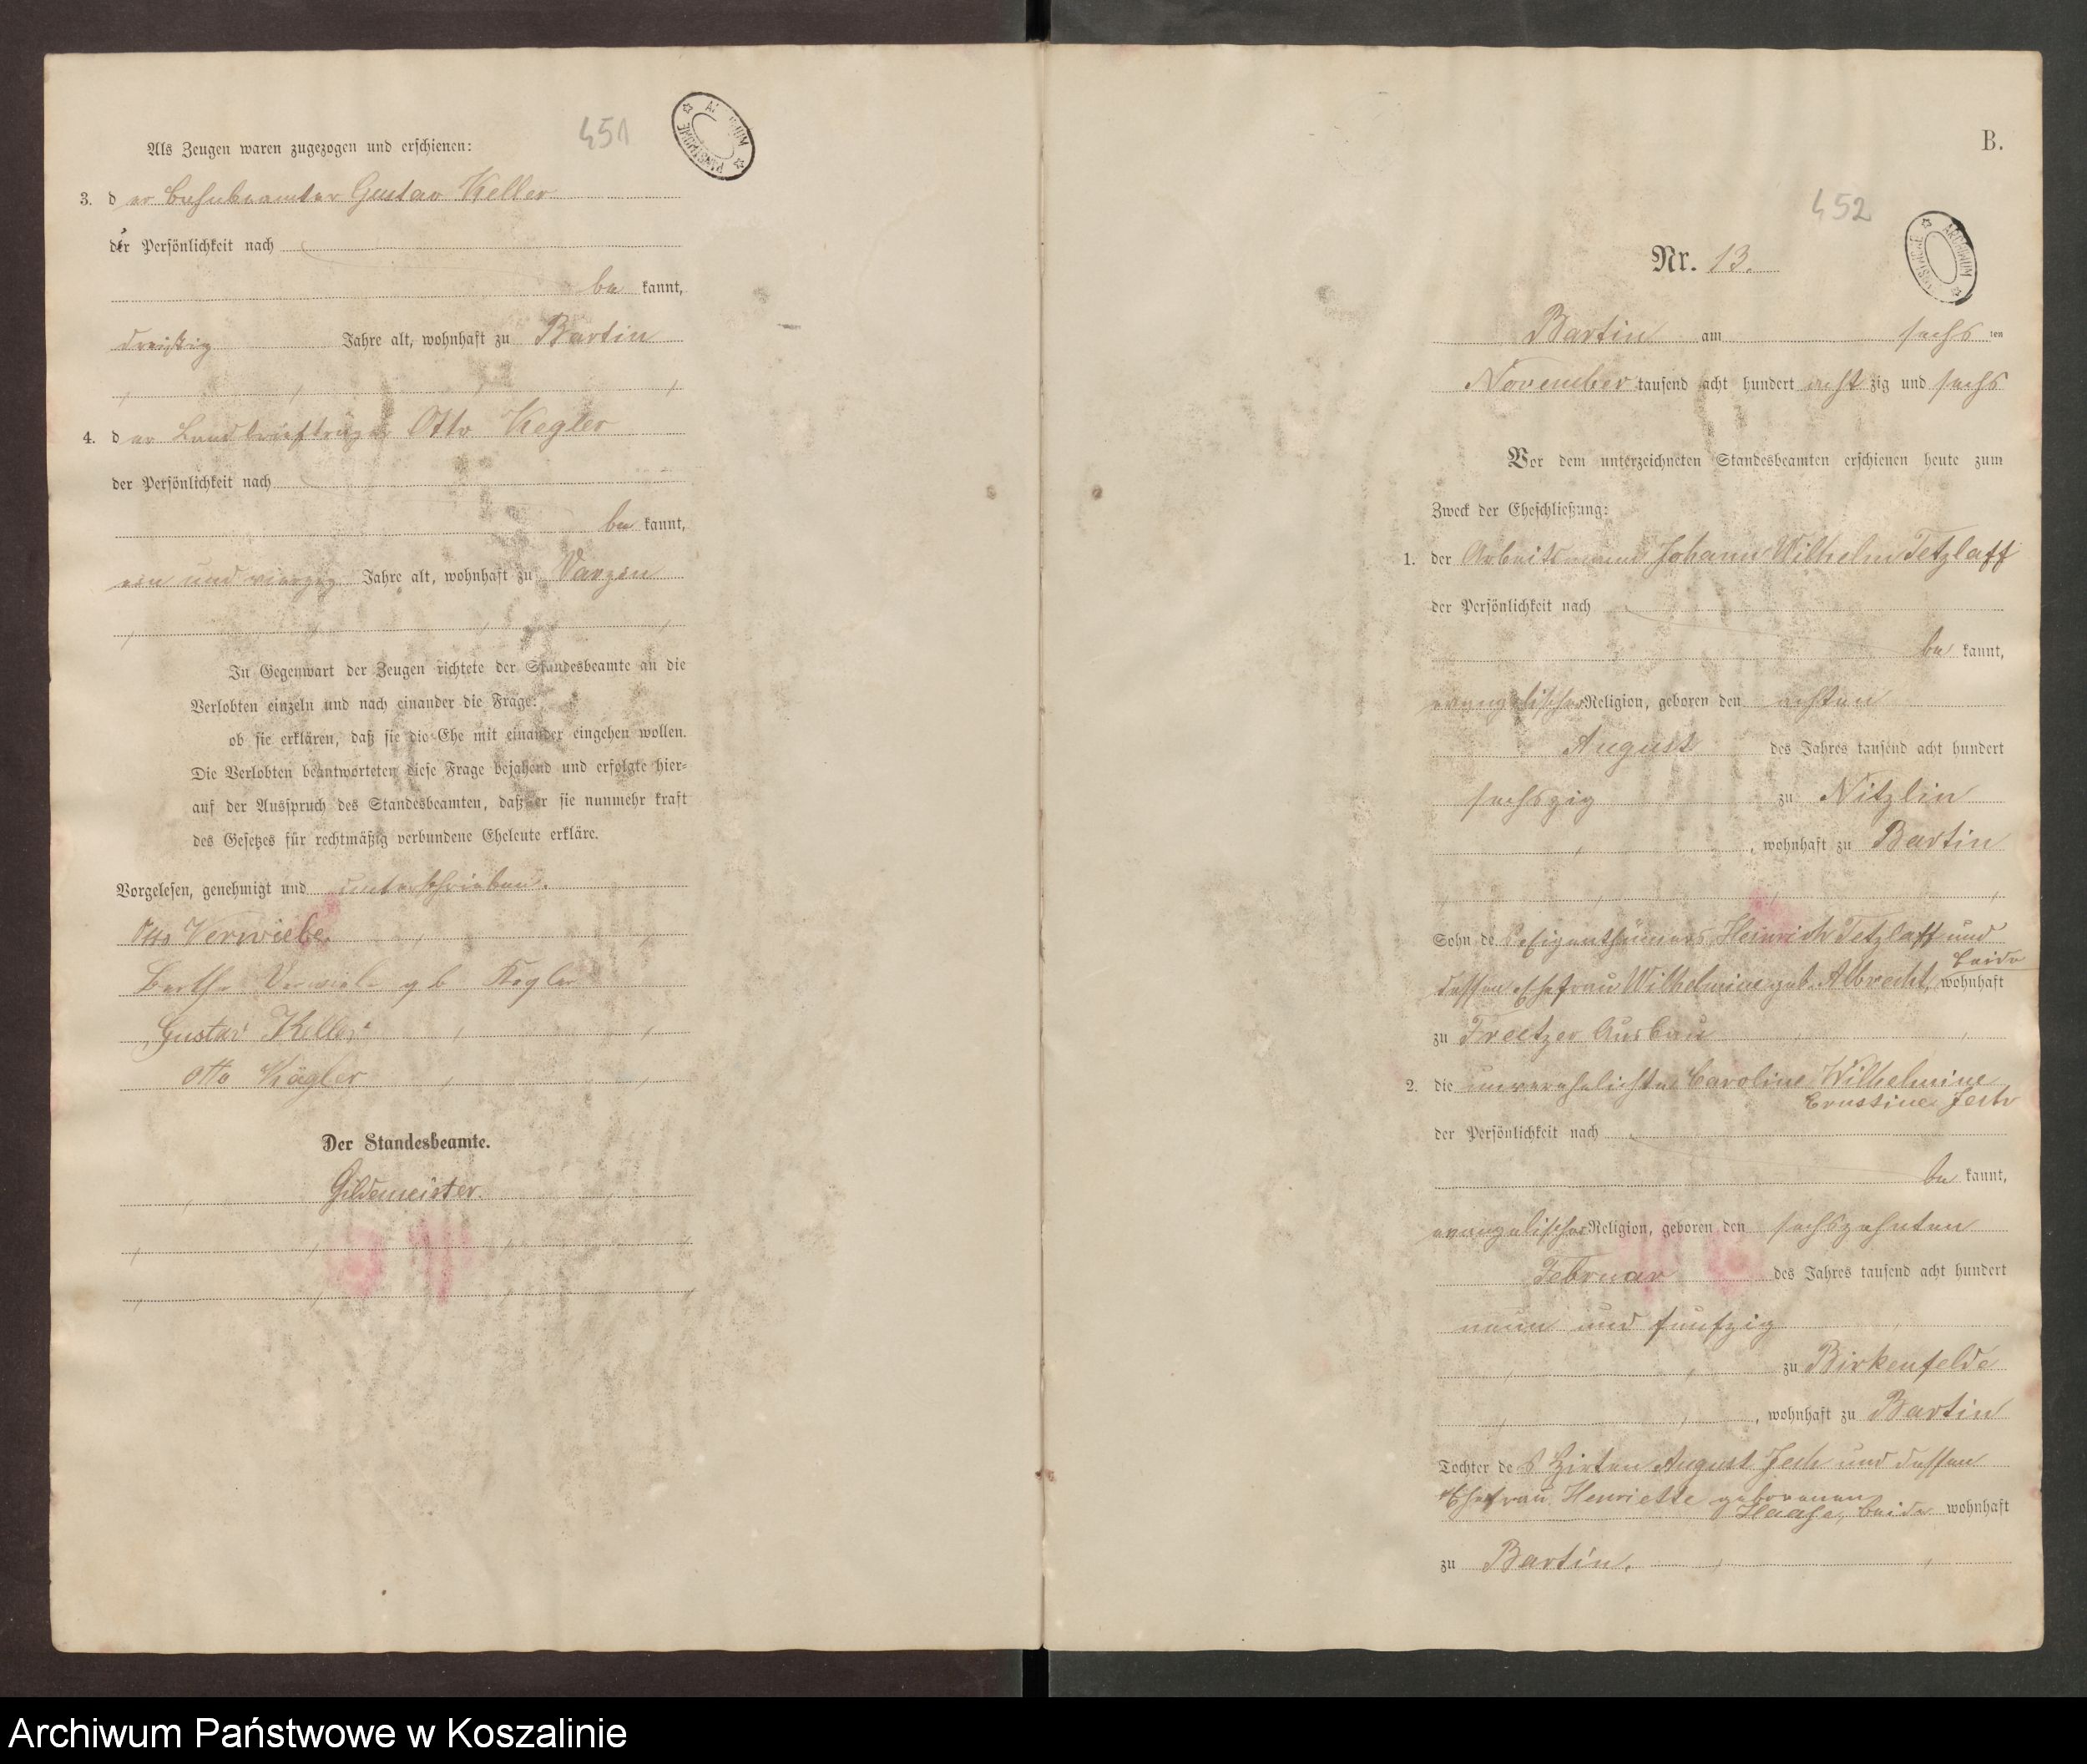 451
Als Zeugen waren zugezogen und erschienen:
3. der Bahnbeamter Gustav Keller
der Persönlichkeit nach
be kannt,
dreißig Jahre alt, wohnhaft zu Bartin
4. der Landbriefträger Otto Kegler
der Persönlichkeit nach
be kannt,
ein und vierzig Jahre alt, wohnhaft zu Varzin
In Gegenwart der Zeugen richtete der Standesbeamte an die
Verlobten einzeln und nach einander die Frage:
ob sie erklären, daß sie die Ehe mit einander eingehen wollen.
Die Verlobten beantworteten diese Frage bejahend und erfolgte hier=
auf der Ausspruch des Standesbeamten, daß er sie nunmehr kraft
des Gesetzes für rechtmäßig verbundene Eheleute erkläre.
Vorgelesen, genehmigt und unterschrieben.
Otto Verwiebe.
Bertha Verwiebe geb Kegler
Gustav Keller
Otto Kägler
Der Standesbeamte.
Gildemeister.
B.
452
ARCHIWUM
Nr. 13.
Bartin am sechs ten
November tausend acht hundert acht zig und sechs
Vor dem unterzeichneten Standesbeamten erschienen heute zum
Zweck der Eheschließung:
1. der Arbeitsmann Johann Wilhelm Tetzlaff
der Persönlichkeit nach
be kannt,
evangelischer Religion, geboren den achten
August des Jahres tausend acht hundert
sechszig zu Nitzlin
, wohnhaft zu Bartin
Sohn des Eigenthümers Heinrich Tetzlaff und
beide
dessen Ehefrau Wilhelmine geb. Albrecht, wohnhaft
zu Treetzer Ausbau
2. die unverehelichte Caroline Wilhelmine
Ernstine Jech
der Persönlichkeit nach
be kannt,
evangelischer Religion, geboren den sechszehnten
Februar des Jahres tausend acht hundert
neun und funfzig
zu Birkenfelde
, wohnhaft zu Bartin
Tochter des Hirten August Jech und dessen
Ehefrau Henriette geborenen
Haase, beide wohnhaft
zu Bartin.
Archiwum Państwowe w Koszalinie